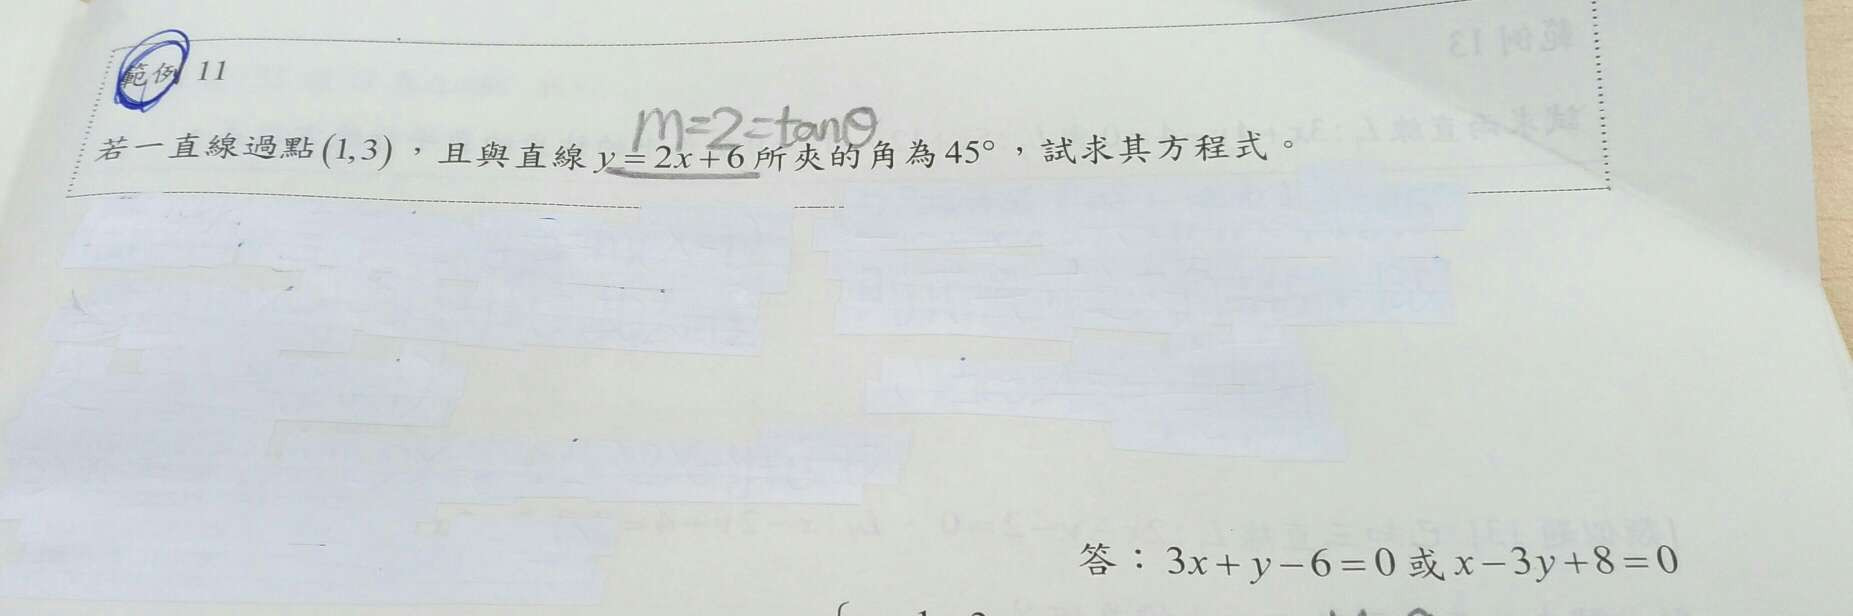 範例 11
m=2=tanθ
若一直線過點(1,3)，且與直線 y=2x+6 所夾的角為45°，試求其方程式。
答：3x+y−6=0 或 x−3y+8=0